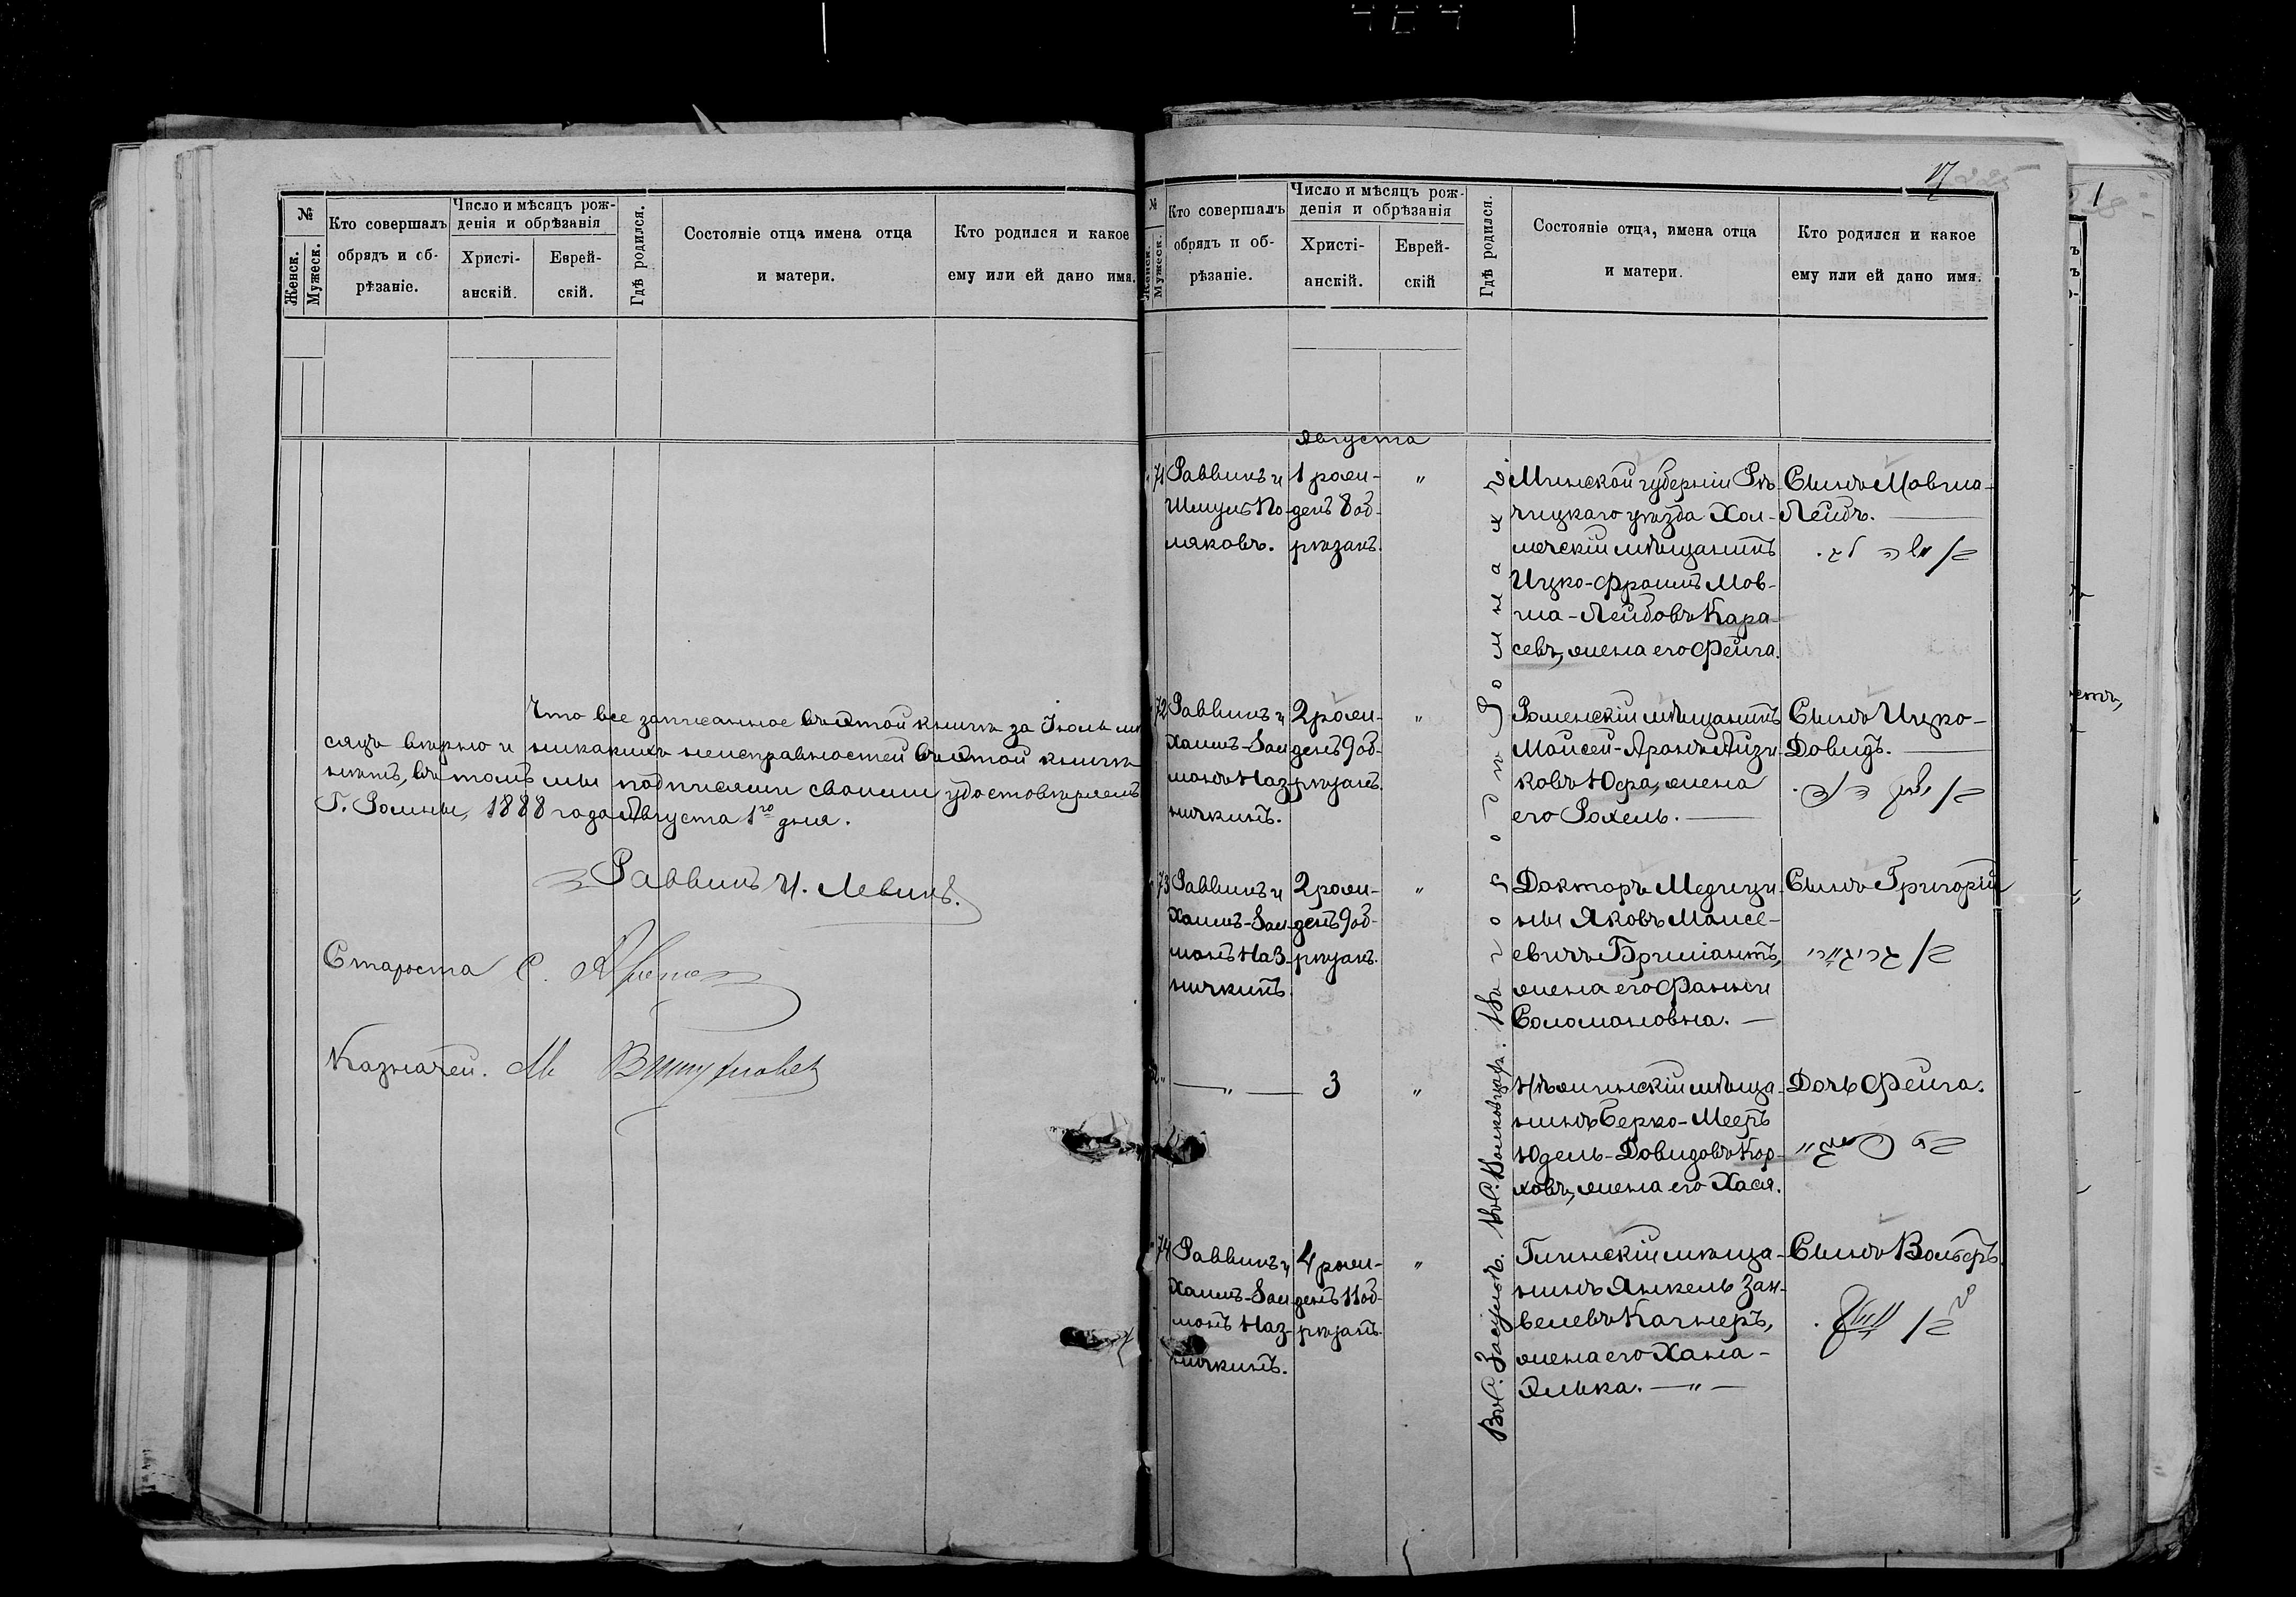 №
Женск.
Мужеск.
Кто совершалъ
обрядъ и об-
рѣзаніе.
Число и мѣсяцъ рож-
денія и обрѣзанія
Христі-
анскій.
Еврей-
скій.
Гдѣ родился.
Состояніе отца имена отца
и матери.
Кто родился и какое
ему или ей дано имя.
Что все записанное въ этой книгѣ за Іюль мѣ
сяцъ вѣрно и никакихъ неисправностей въ этой книгѣ
нѣтъ, въ томъ мы подписями своими удостовѣряемъ
Г. Ромны, 1888 года Августа 1го дня.
Раввинъ И. Левинъ.
Староста С.
Казначей. М.
17
№
Женск.
Мужеск.
Кто совершалъ
обрядъ и об-
рѣзаніе.
Число и мѣсяцъ рож-
денія и обрѣзанія
Христі-
анскій.
Еврей-
скій
Гдѣ родился.
Состояніе отца, имена отца
и матери.
Кто родился и какое
ему или ей дано имя.
Августа
71
Раввинъ и
Шмуль По-
ляковъ.
1 рож-
денъ 8 об-
рѣзанъ.
"
Минской губерніи Рѣ-
чицкаго уѣзда Хол-
мечскій мѣщанинъ
Ицко-Фроимъ Мов-
ша-Лейбовъ Кара-
севъ, жена его Фейга.
Сынъ Мовша-
Лейбъ.
72
Раввинъ и
Хаимъ-Зал
монъ Наз-
ничкинъ.
2 рож-
денъ 9 об-
рѣзанъ.
"
Роменскій мѣщанинъ
Моисей-Аронъ Айзи-
ковъ Юфа, жена
его Рохель.
Сынъ Ицко-
Довидъ.
73
Раввинъ и
Хаимъ-Зал-
монъ Наз-
ничкинъ.
2 рож-
денъ 9 об-
рѣзанъ.
"
Докторъ Медици-
ны Яковъ Моисе-
евичъ Бриліантъ,
жена его Фанни
Соломоновна.
Сынъ Григорій
"
3
"
Нѣжинскій мѣща-
нинъ Берко-Мееръ
Юдель-Довидовъ Кор-
ховъ, жена его Хася.
Дочь Фейга.
74
Раввинъ и
Хаимъ-Зал
монъ Наз-
ничкинъ.
4 рож-
денъ 11 об-
рѣзанъ.
"
Глинскій мѣща-
нинъ Янкель Зан-
велевъ Качнеръ,
жена его Хана-
Элька. — " —
Сынъ Вольфъ